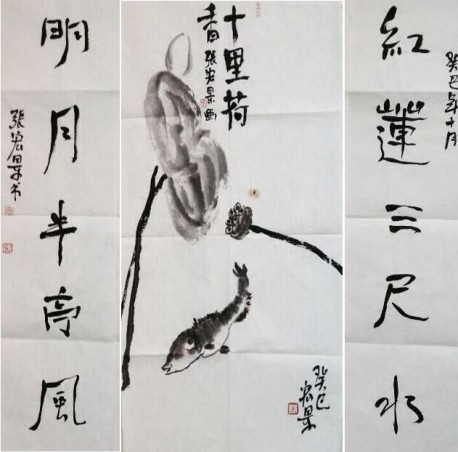 癸巳年十月
紅蓮三尺水
十里荷
香 張宏景画
癸巳
宏景
明月半亭風
張宏景书